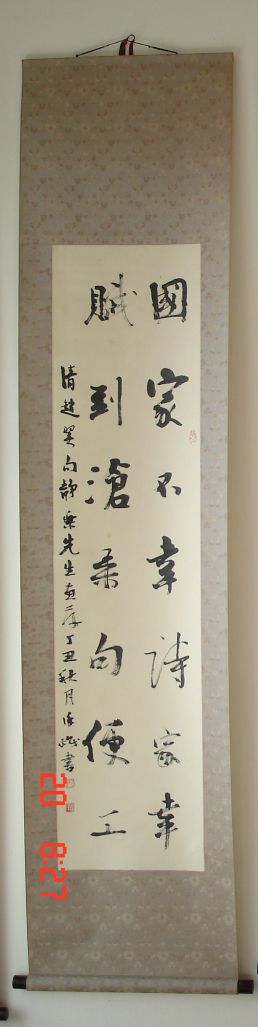 國家不幸詩家幸
賦到滄桑句便工
清趙翼句靜樂先生
丁丑秋月
書
20 8:27